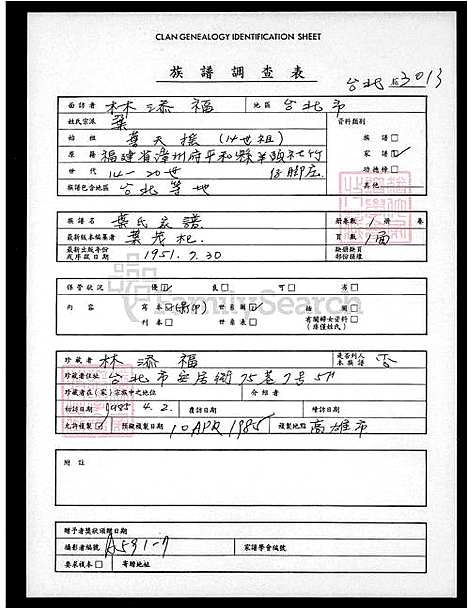 CLAN GENEALOGY IDENTIFICATION SHEET
族譜調查表
台北 3013
面訪者 林添福 地區 台北市
姓氏宗派 葉 資料類別
始祖 葉天 (14世祖) 族譜□
原籍 福建省漳州府平和縣 家譜☑
世代 14-20世 功德榜□
族譜包含地區 台北等地 其他
族譜名 葉氏家譜 冊卷數 1 冊 卷
最新版本編纂者 葉茂杞 頁數 1面
最新出版年份或序跋日期 1951.7.30 缺冊缺頁部份殘壞
保管狀況 優☑ 良□ 可□ 劣□
內容 寫本☑(影印) 世系圖☑ 插圖□
刊本□ 世系表□ 有關婦女資料□(非僅姓氏)
FamilySearch
珍藏者 林添福 是否列入本族譜 否
珍藏者住址 台北市安居街75巷7号5F
珍藏者在(家)宗族中之地位 介紹者
初訪日期 1985 4. 2. 覆訪日期 續訪日期
允許複製☑ 預擬複製日期 10 APR 1985 複製地點 高雄市
附註
贈予者獎狀頒贈日期
攝影者編號 A591-7 家譜學會編號
要求複本□ 寄贈地址